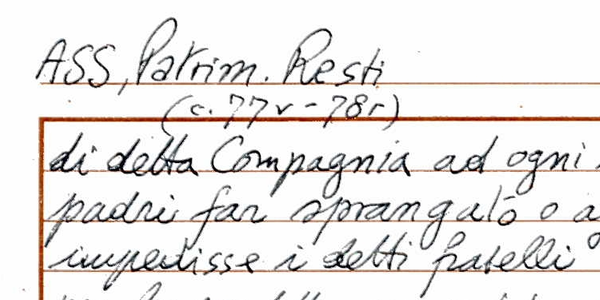 ASS, Patrim. Resti
(c. 77v - 78r)
di detta Compagnia ad ogni
padri far sprangalò o
impedisse i detti fratelli